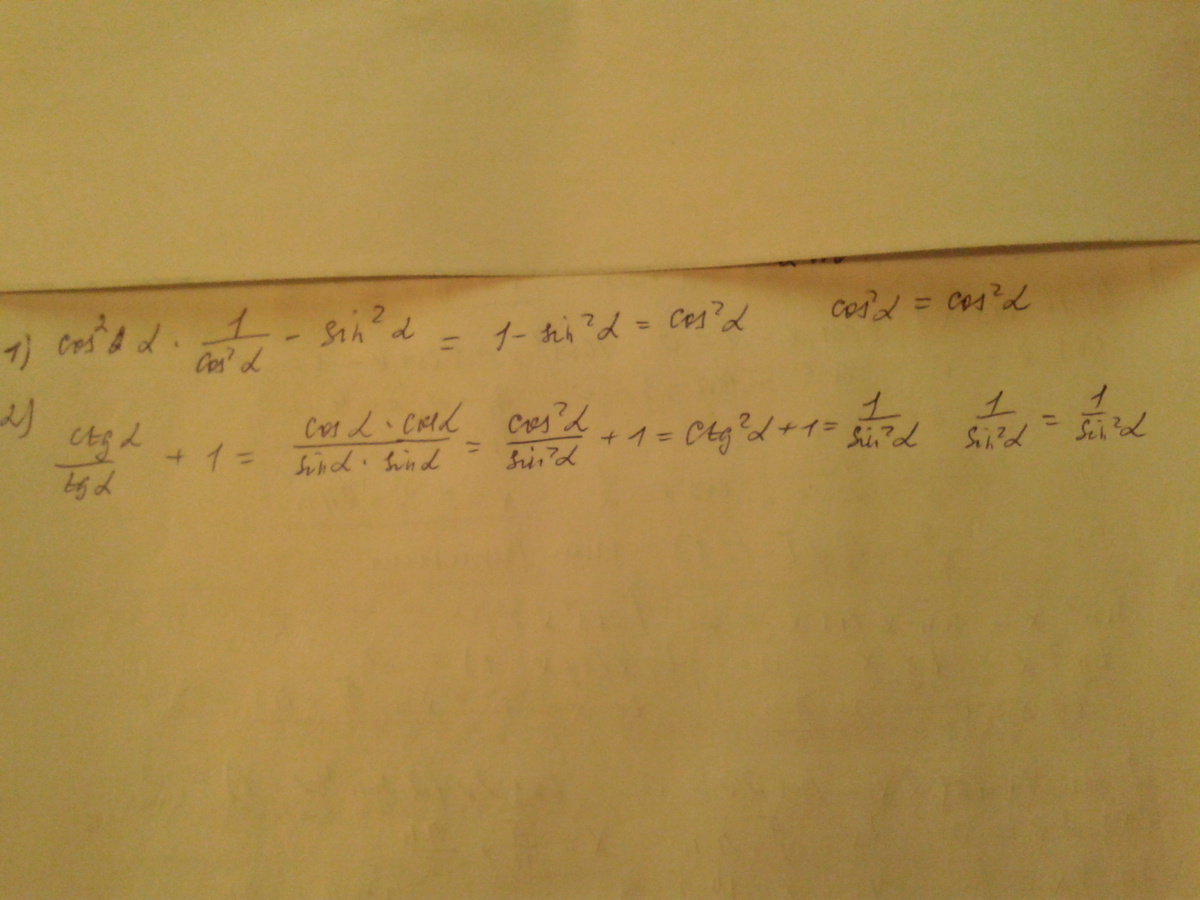 1) cos² α · 1/cos²α - sin²α = 1 - sin²α = cos²α cos²α = cos²α
2) ctgα/tgα + 1 = cosα · cosα/sinα · sinα = cos²α/sin²α + 1 = ctg²α + 1 = 1/sin²α 1/sin²α = 1/sin²α